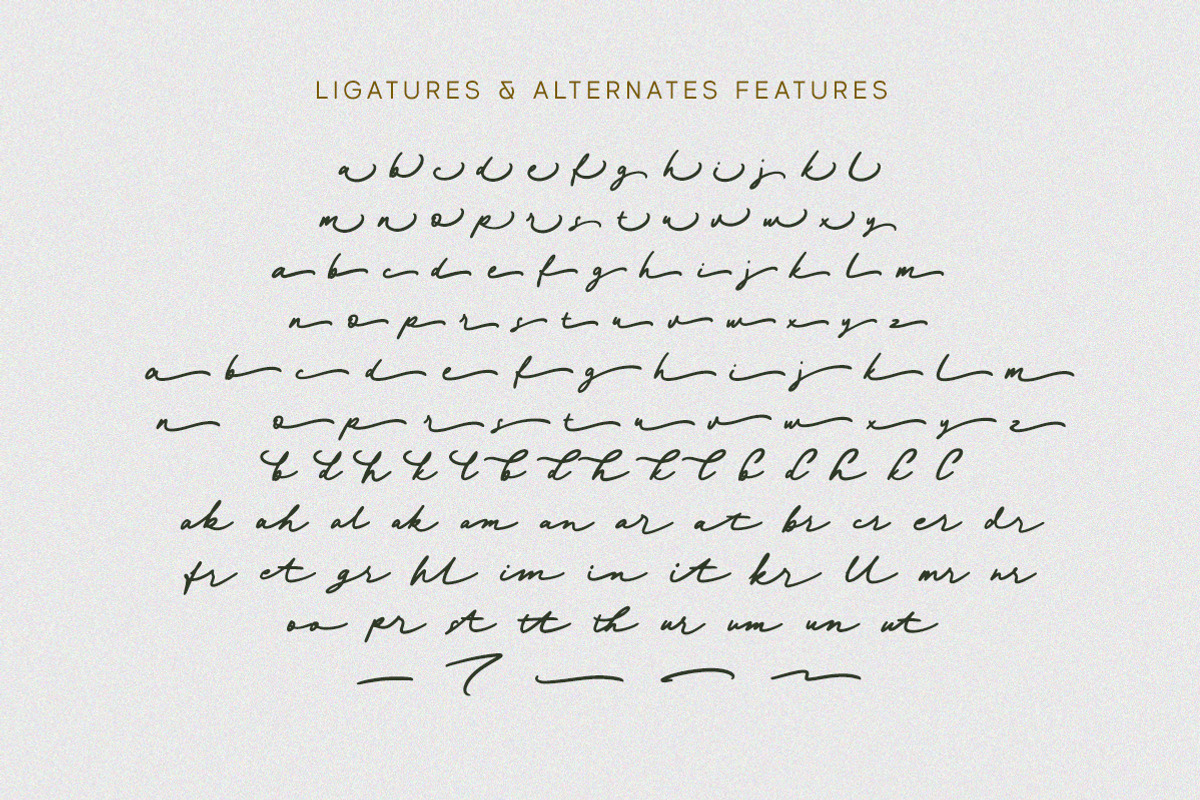 LIGATURES & ALTERNATES FEATURES
a b c d e f g h i j k l
m n o p r s t u v w x y
a b c d e f g h i j k l m
n o p r s t u v w x y z
a b c d e f g h i j k l m
n o p r s t u v w x y z
b d h k l b d h k l b d h k l
ak ah al ak am an ar at br cr er dr
fr et gr hl im in it kr ll mr nr
oo pr st tt th ur um un ut